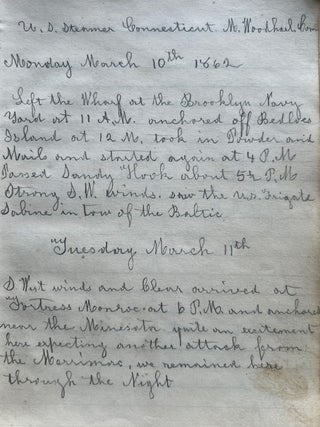 U. S. Steamer Connecticut M. Woodhull Com
Monday March 10th 1862
Left the Wharf at the Brooklyn Navy
Yard at 11 A.M. anchored off Bedloes
Island at 12 M, took in Powder and
Mails and started again at 4 P.M
Passed Sandy Hook about 5½ P.M
Strong S.W. winds. saw the U.S. Frigate
Sabine in tow of the Baltic
Tuesday March 11th
S. West winds and Clear arrived at
Fortress Monroe at 6 P.M. and anchored
near the Minesota quite an excitement
here expecting another attack from
the Merrimac, we remained here
through the Night